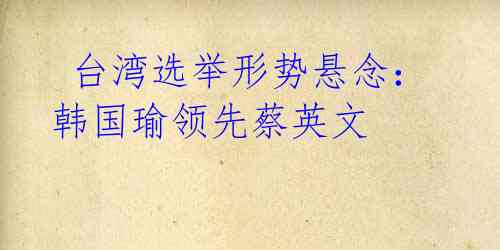 台湾选举形势悬念：
韩国瑜领先蔡英文